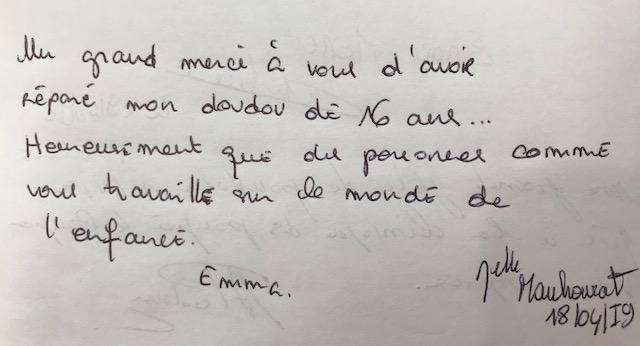 Un grand merci à vous d'avoir
réparé mon doudou de 16 ans...
Heureusement que des personnes comme
vous travaille sur le monde de
l'enfance.
Emma.
Melle
Mauhourat
18/04/19